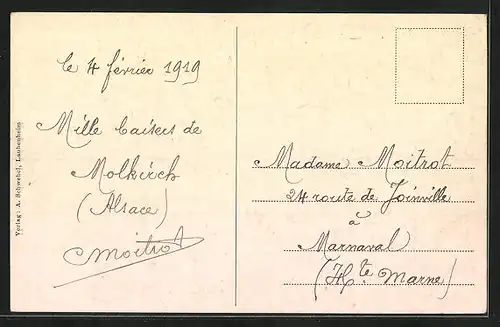 le 4 février 1919
Mille baisers de
Molkirch
(Alsace)
Moitrot
Madame Moitrot
24 route de Joinville
à
Marnaval
(Hte Marne)
Verlag: A. Schwehel, Laubenheim